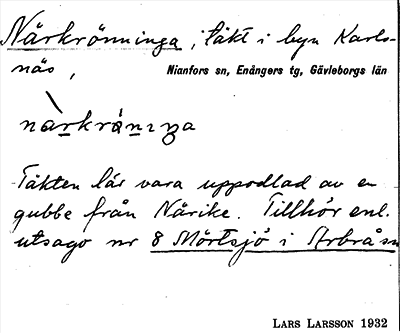 Närkrönninga, täkt i byn Karls-
näs,
Nianfors sn, Enångers tg, Gävleborgs län
Täkten lär vara uppodlad av en
gubbe från Närike. Tillhör enl.
utsago nr 8 Mörtsjö i Arbrå sn
LARS LARSSON 1932